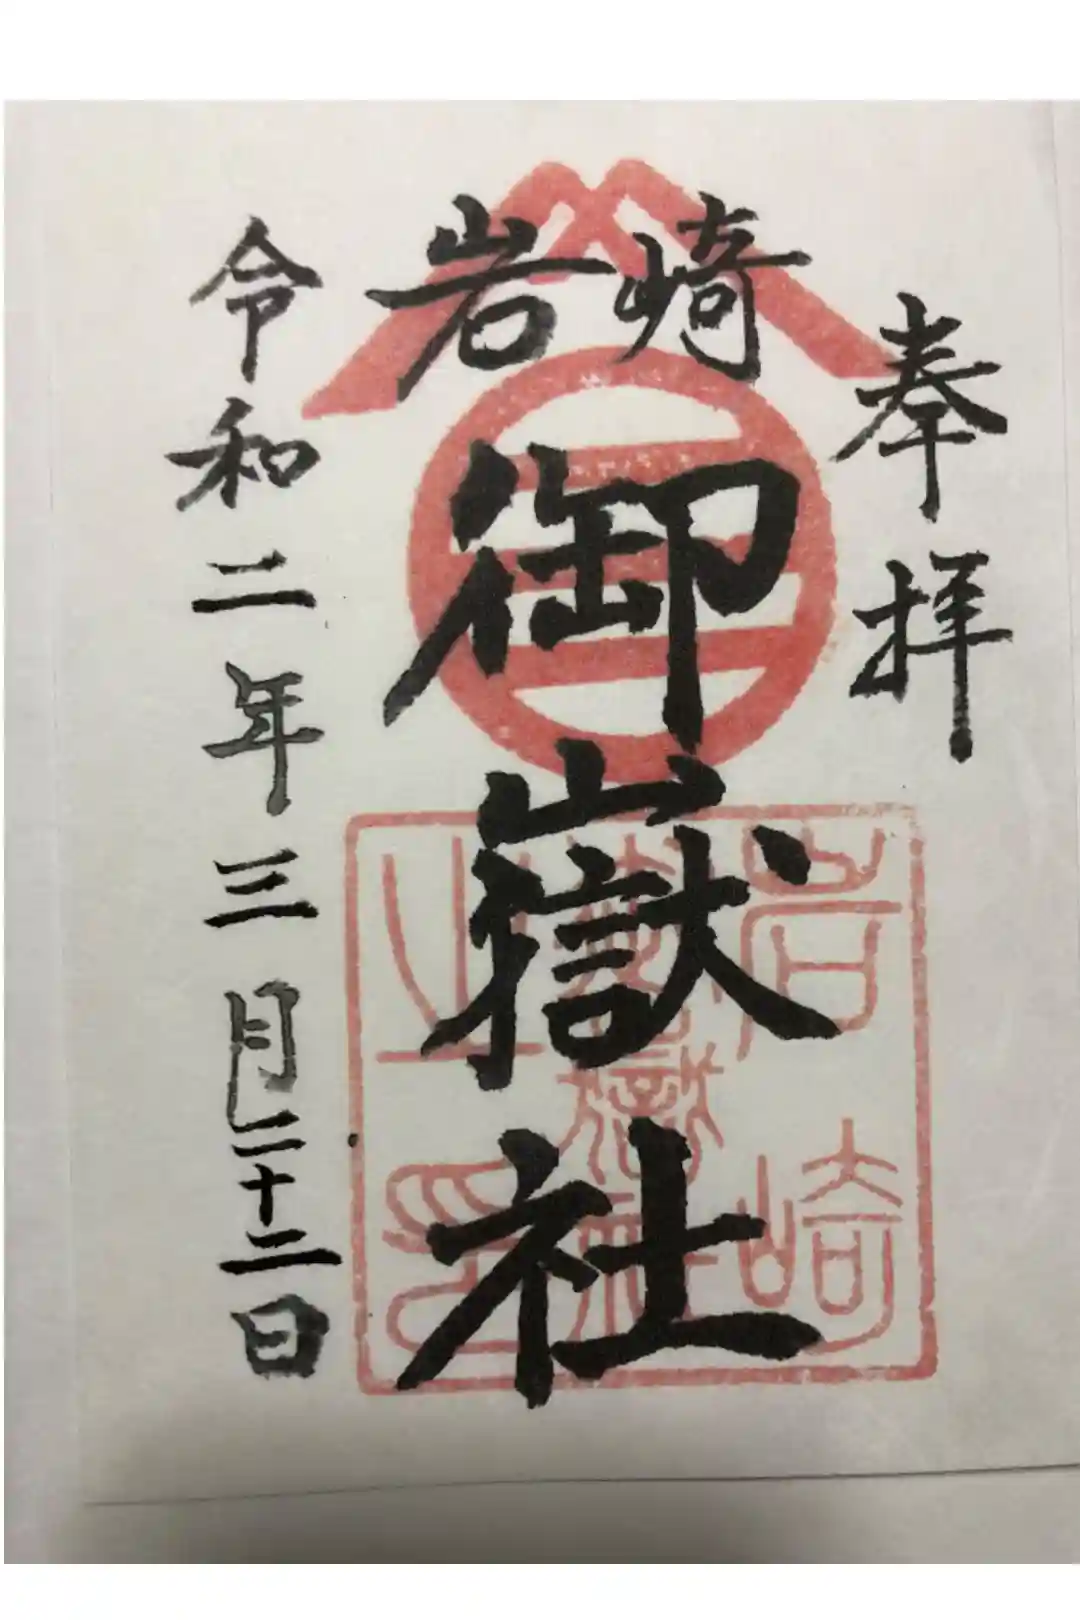 奉拝
岩崎
御嶽社
令和二年三月二十二日
岩崎
御嶽社
之印